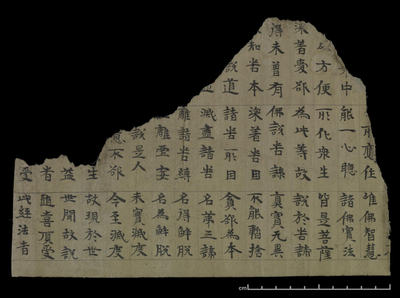 所應作 唯佛智慧
中 能一心聽 諸佛實法
方便 所化眾生 皆是菩薩
深著愛欲 為此等故 說於苦諦
得未曾有 佛說苦諦 真實无異
知苦本 深著苦因 不能暫捨
說道 諸苦所因 貪欲為本
滅盡諸苦 名第三諦
離諸苦縛 名得解脫
離虛妄 名為解脫
說是人 未實滅度
意不欲 令至滅度
生 故現於世
益 世間故說
者 隨喜頂受
受 此經法者
cm